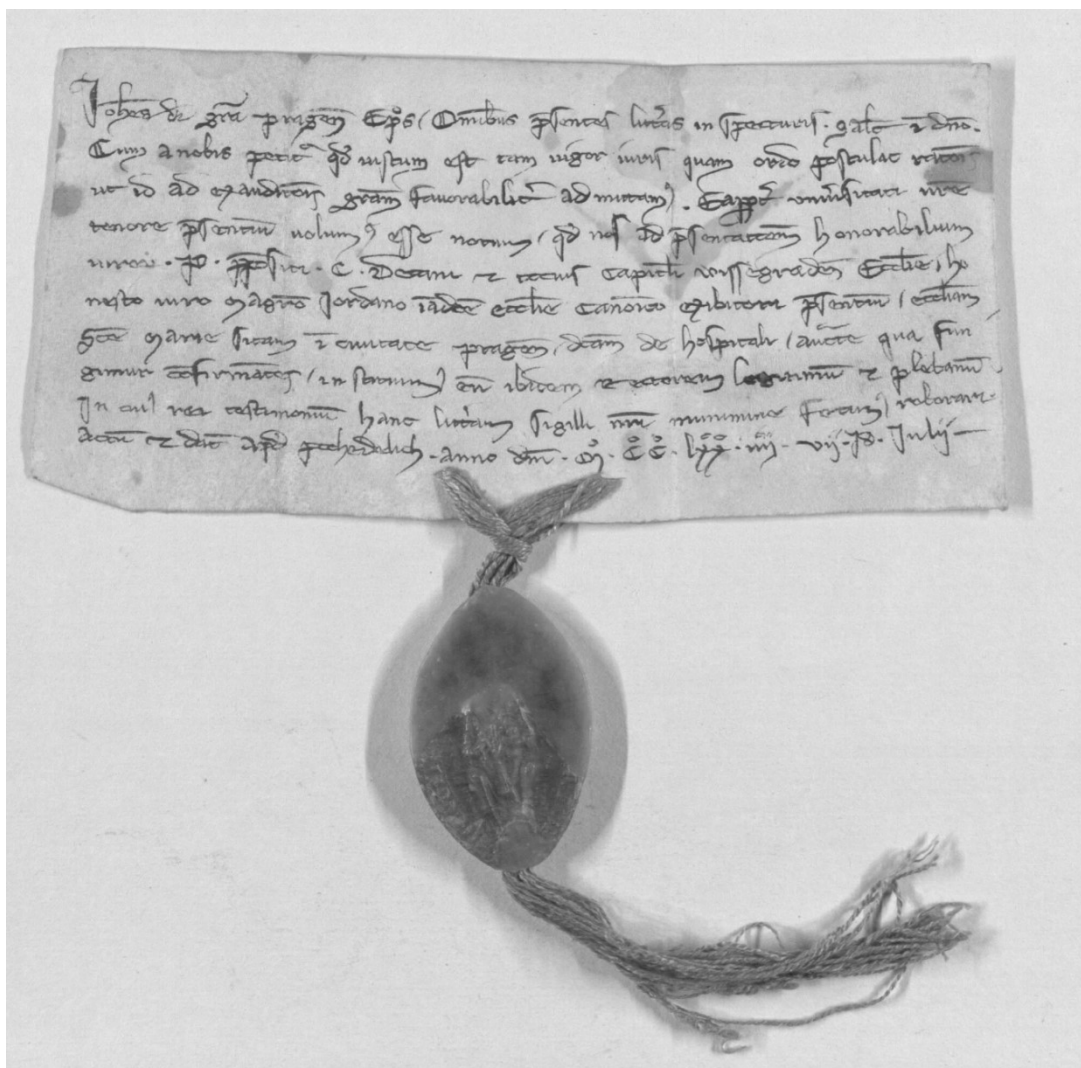 Johes di gra pragen Eps / Omibus psentes litas in specturis. Salt i dno.
Cum a nobis petit qd iustum est tam uigor iuris quam ordo postulat raton
ut id ad exauditois gram fauorabilit admittam. Eapp vniusitati vre
tenore psentiu uolum esse notum / qd nos ad psentatoem honorabilium
uiror. P. ppositi. C. Decani et tocius capitli wissegraden Ecclie, ho
nesto uiro magro Jordano iadce ecclie canoico exibitori psentiu / eccliam
sce Marie sitam i ciuitate pragen, dcam de hospitali / aucte qua fun
gimur cofirmates / in statuim eu ibidem rectorem legitimu et plebanu
In cui rei testimoniu hanc litam sigilli nri munimine fecim roborari.
Actu et dat apd hedelich. anno dni. M. CC. lxx. iiii. vii. Id. Julii